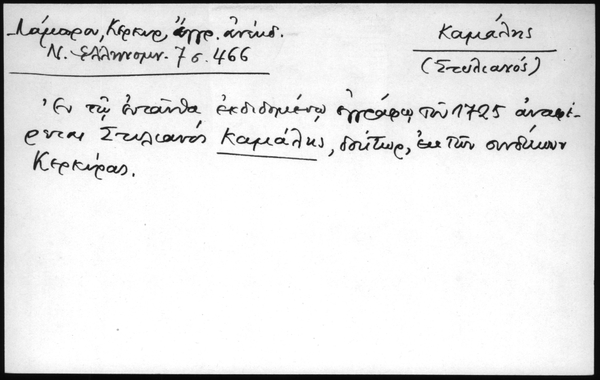 Λάμπρου, Κερκυρ. ἔγγρ. ἀνέκδ.
Ν. Ἑλληνομν. 7 σ. 466
Καμάλης
(Στυλιανός)
Ἐν τῷ ἐνταῦθα ἐκδιδομένῳ ἐγγράφῳ τοῦ 1725 ἀναφέ-
ρεται Στυλιανός Καμάλης, δόκτωρ, ἐκ τῶν συνδίκων
Κερκύρας.